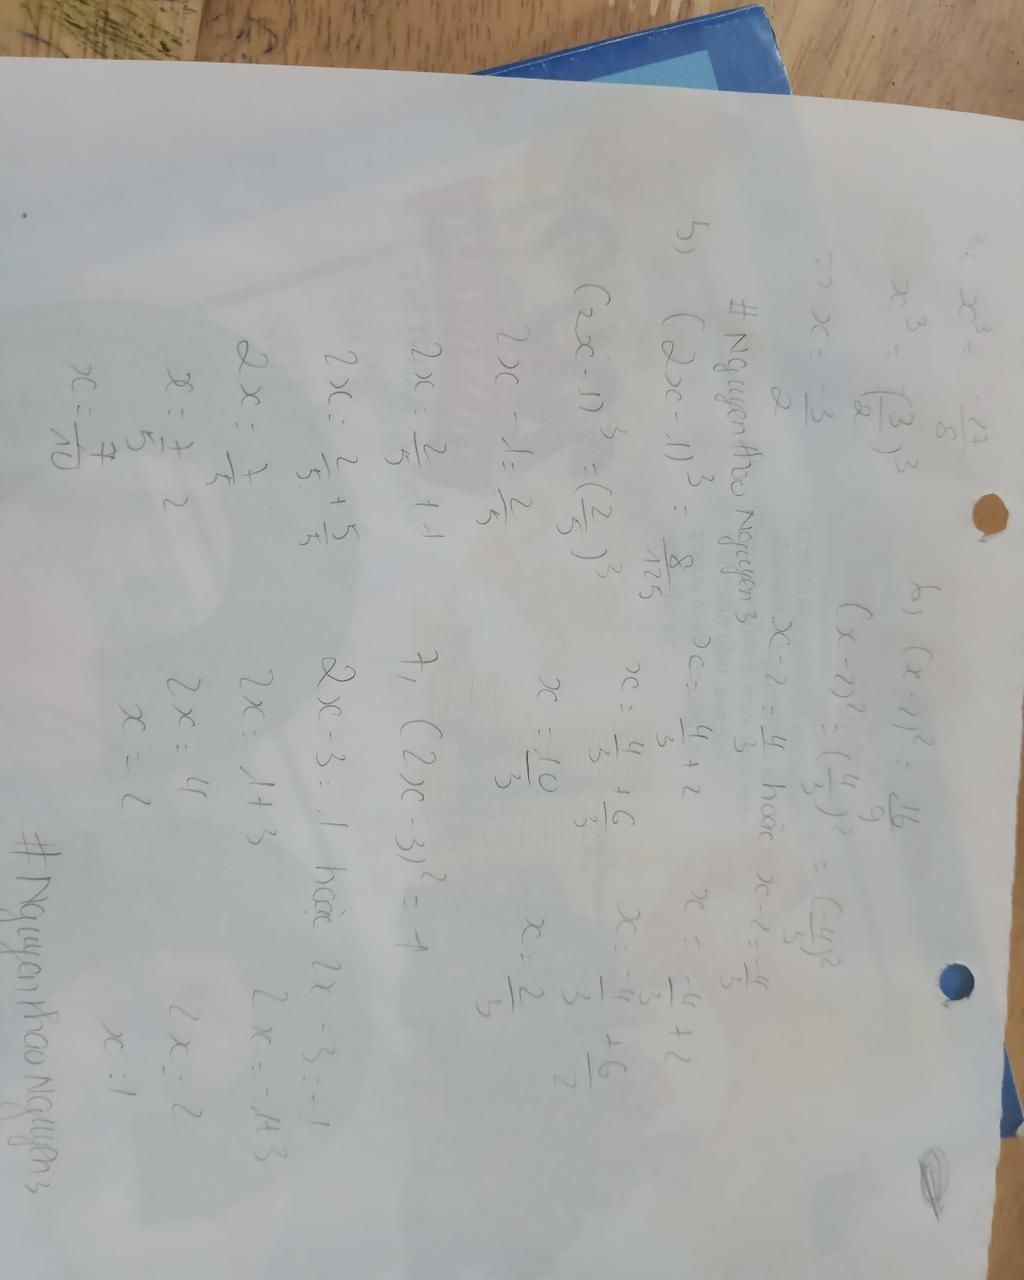 x³ = -27/8
x³ = (3/2)³
=> x = -3/2
#NguyenthaoNguyen3
5, (2x - 1)³ = 8/125
(2x - 1)³ = (2/5)³
2x - 1 = 2/5
2x = 2/5 + 1
2x = 2/5 + 5/5
2x = 7/5
x = 7/5 2
x = 7/10
6, (x - 2)² = 16/9
(x - 2)² = (4/3)² = (-4/3)²
x - 2 = 4/3 hoặc x - 2 = -4/3
x = 4/3 + 2 x = -4/3 + 2
x = 4/3 + 6/3 x = -4/3 + 6/2
x = 10/3 x = 2/3
7, (2x - 3)² = 1
2x - 3 = 1 hoặc 2x - 3 = -1
2x = 1 + 3 2x = -1 + 3
2x = 4 2x = 2
x = 2 x = 1
#NguyenthaoNguyen3